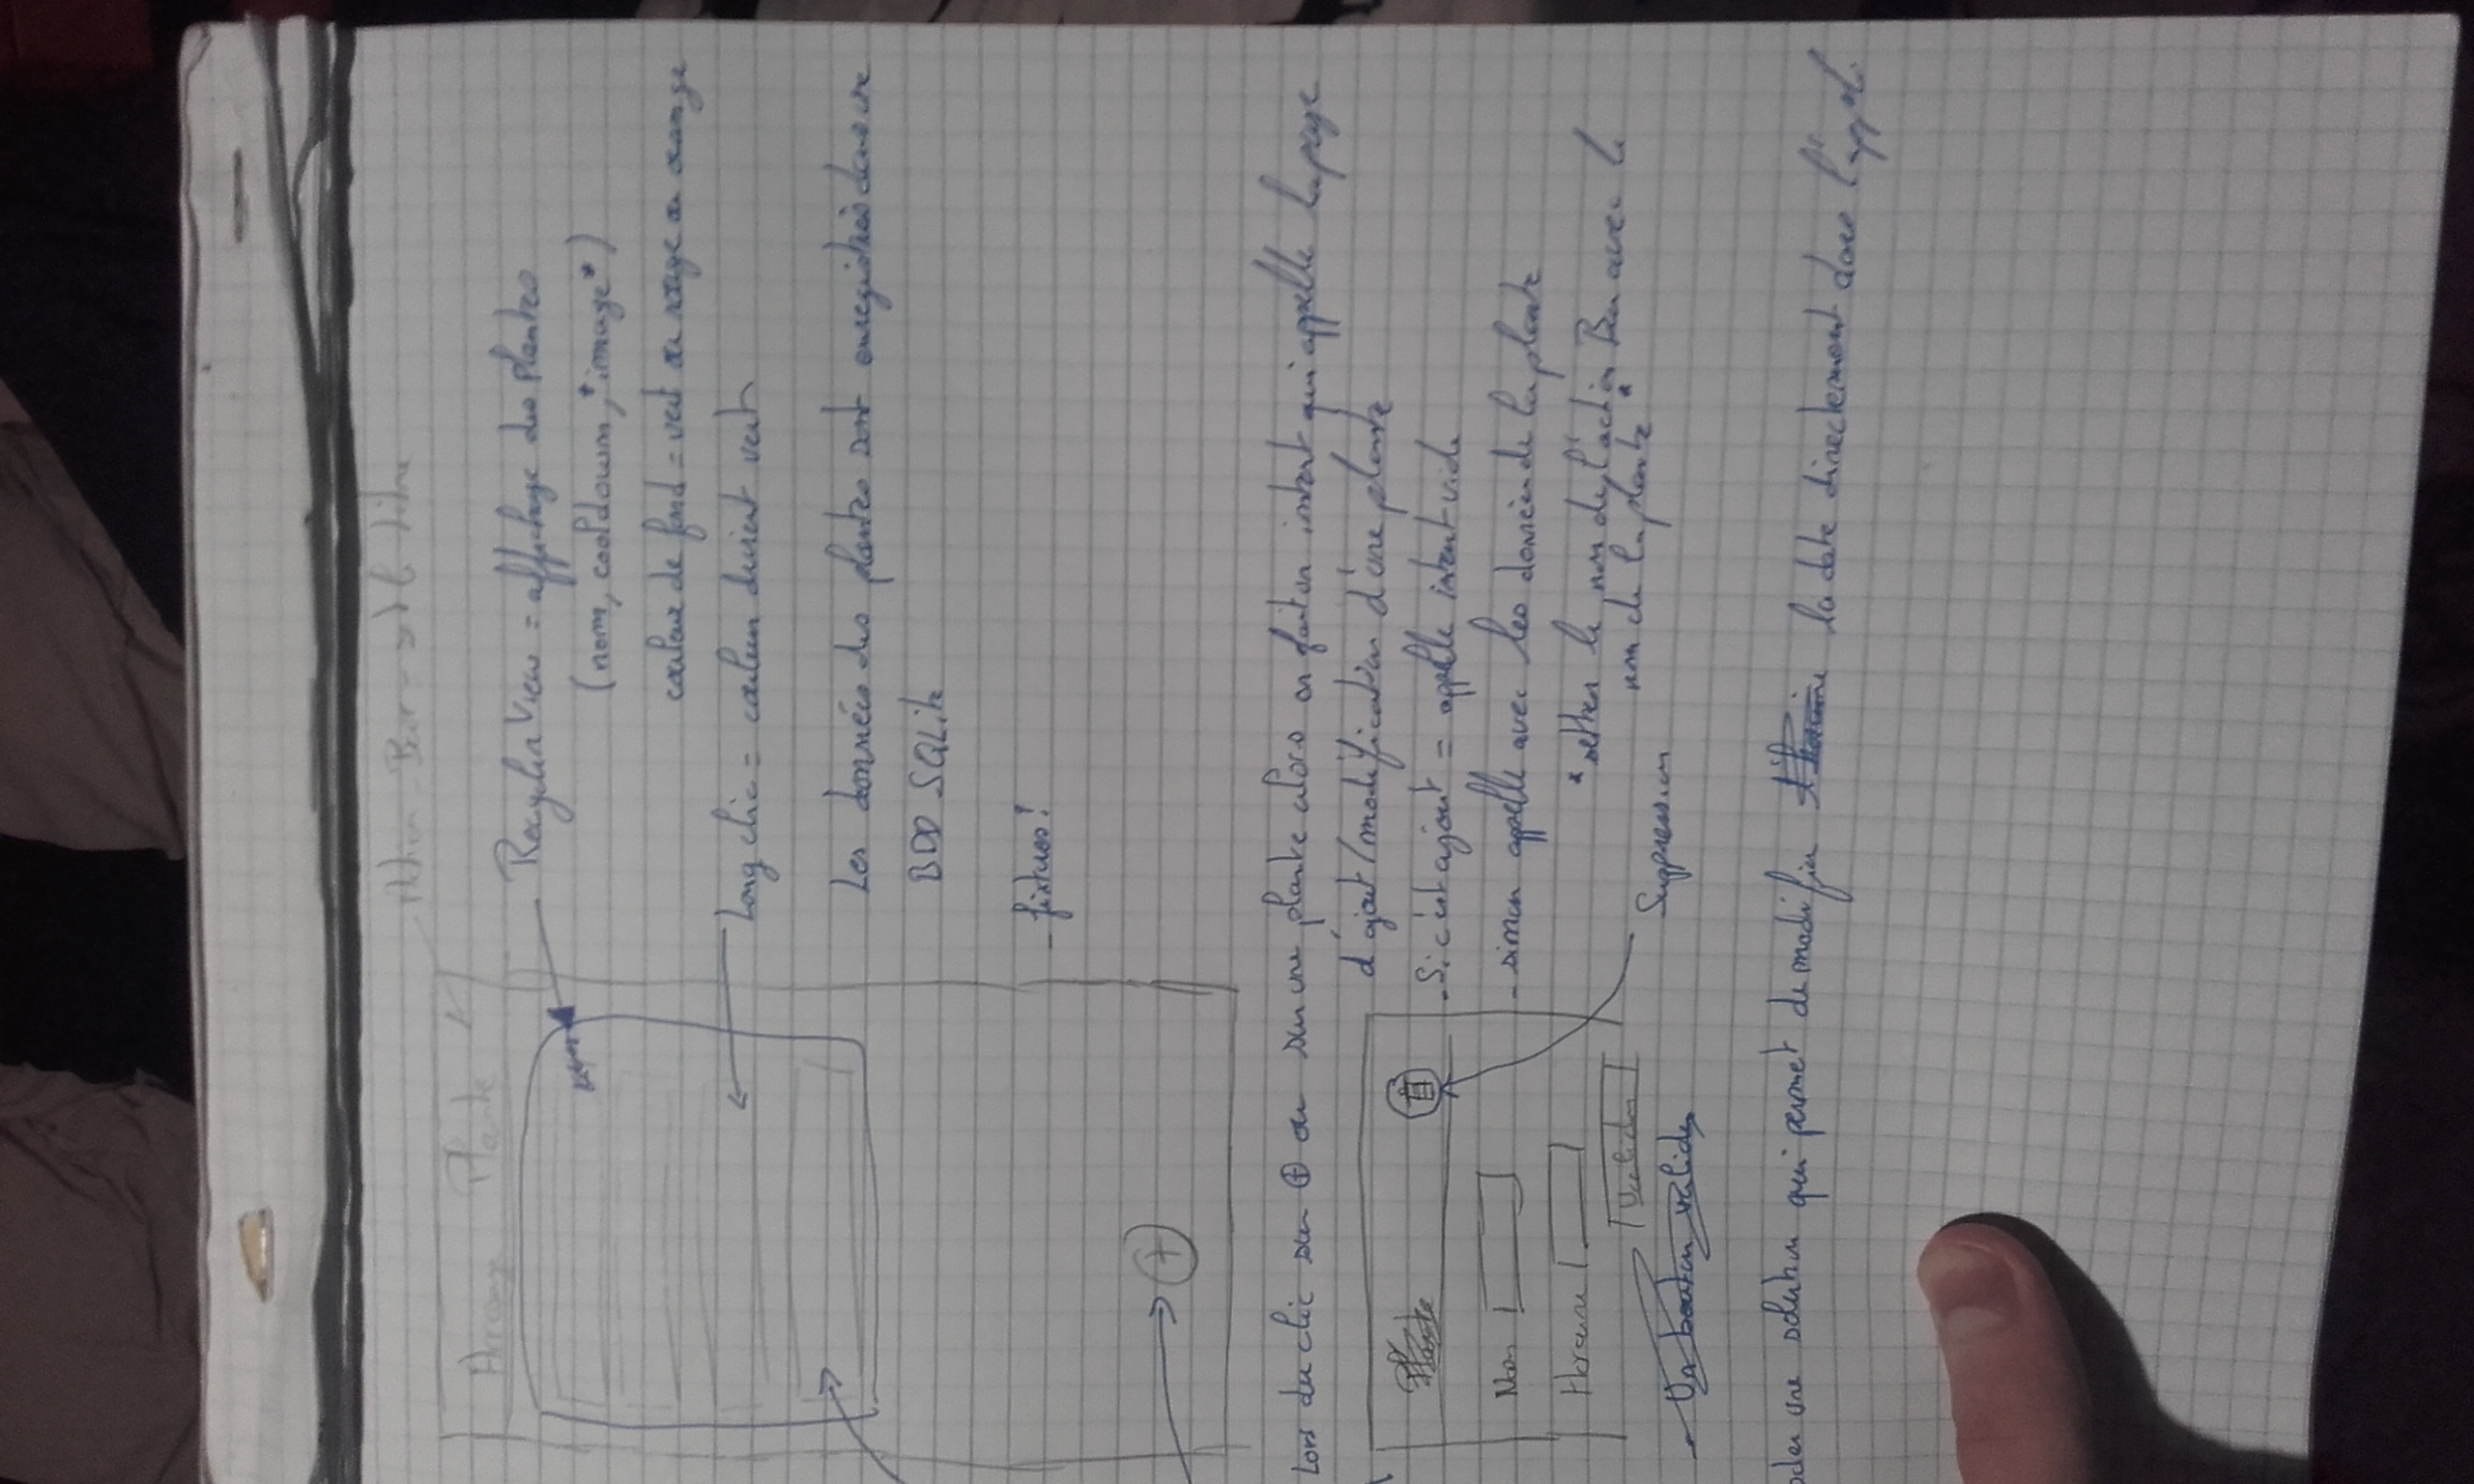 Action-Bar => le titre
Arrosage Plante
RecyclerView = affichage des plantes
(nom, cooldown, *image*)
couleur de fond = vert ou rouge ou orange
Long clic = couleur devient vert
Les données des plantes sont enregistrés dans une
BDD SQLite
- fixtures!
+
Lors du clic sur ⊕ ou sur une plante alors on fait un intent qui appelle la page
d'ajout/modification d'une plante
Plante
- Si c'est ajout = appelle intent vide
Nom
- sinon appelle avec les données de la plante
Horaire
*setter le nom de l'action Bar avec le
nom de la plante*
Valider
Suppression
- Un bouton valider
une solution qui permet de modifier l'horaire la date directement dans l'appli